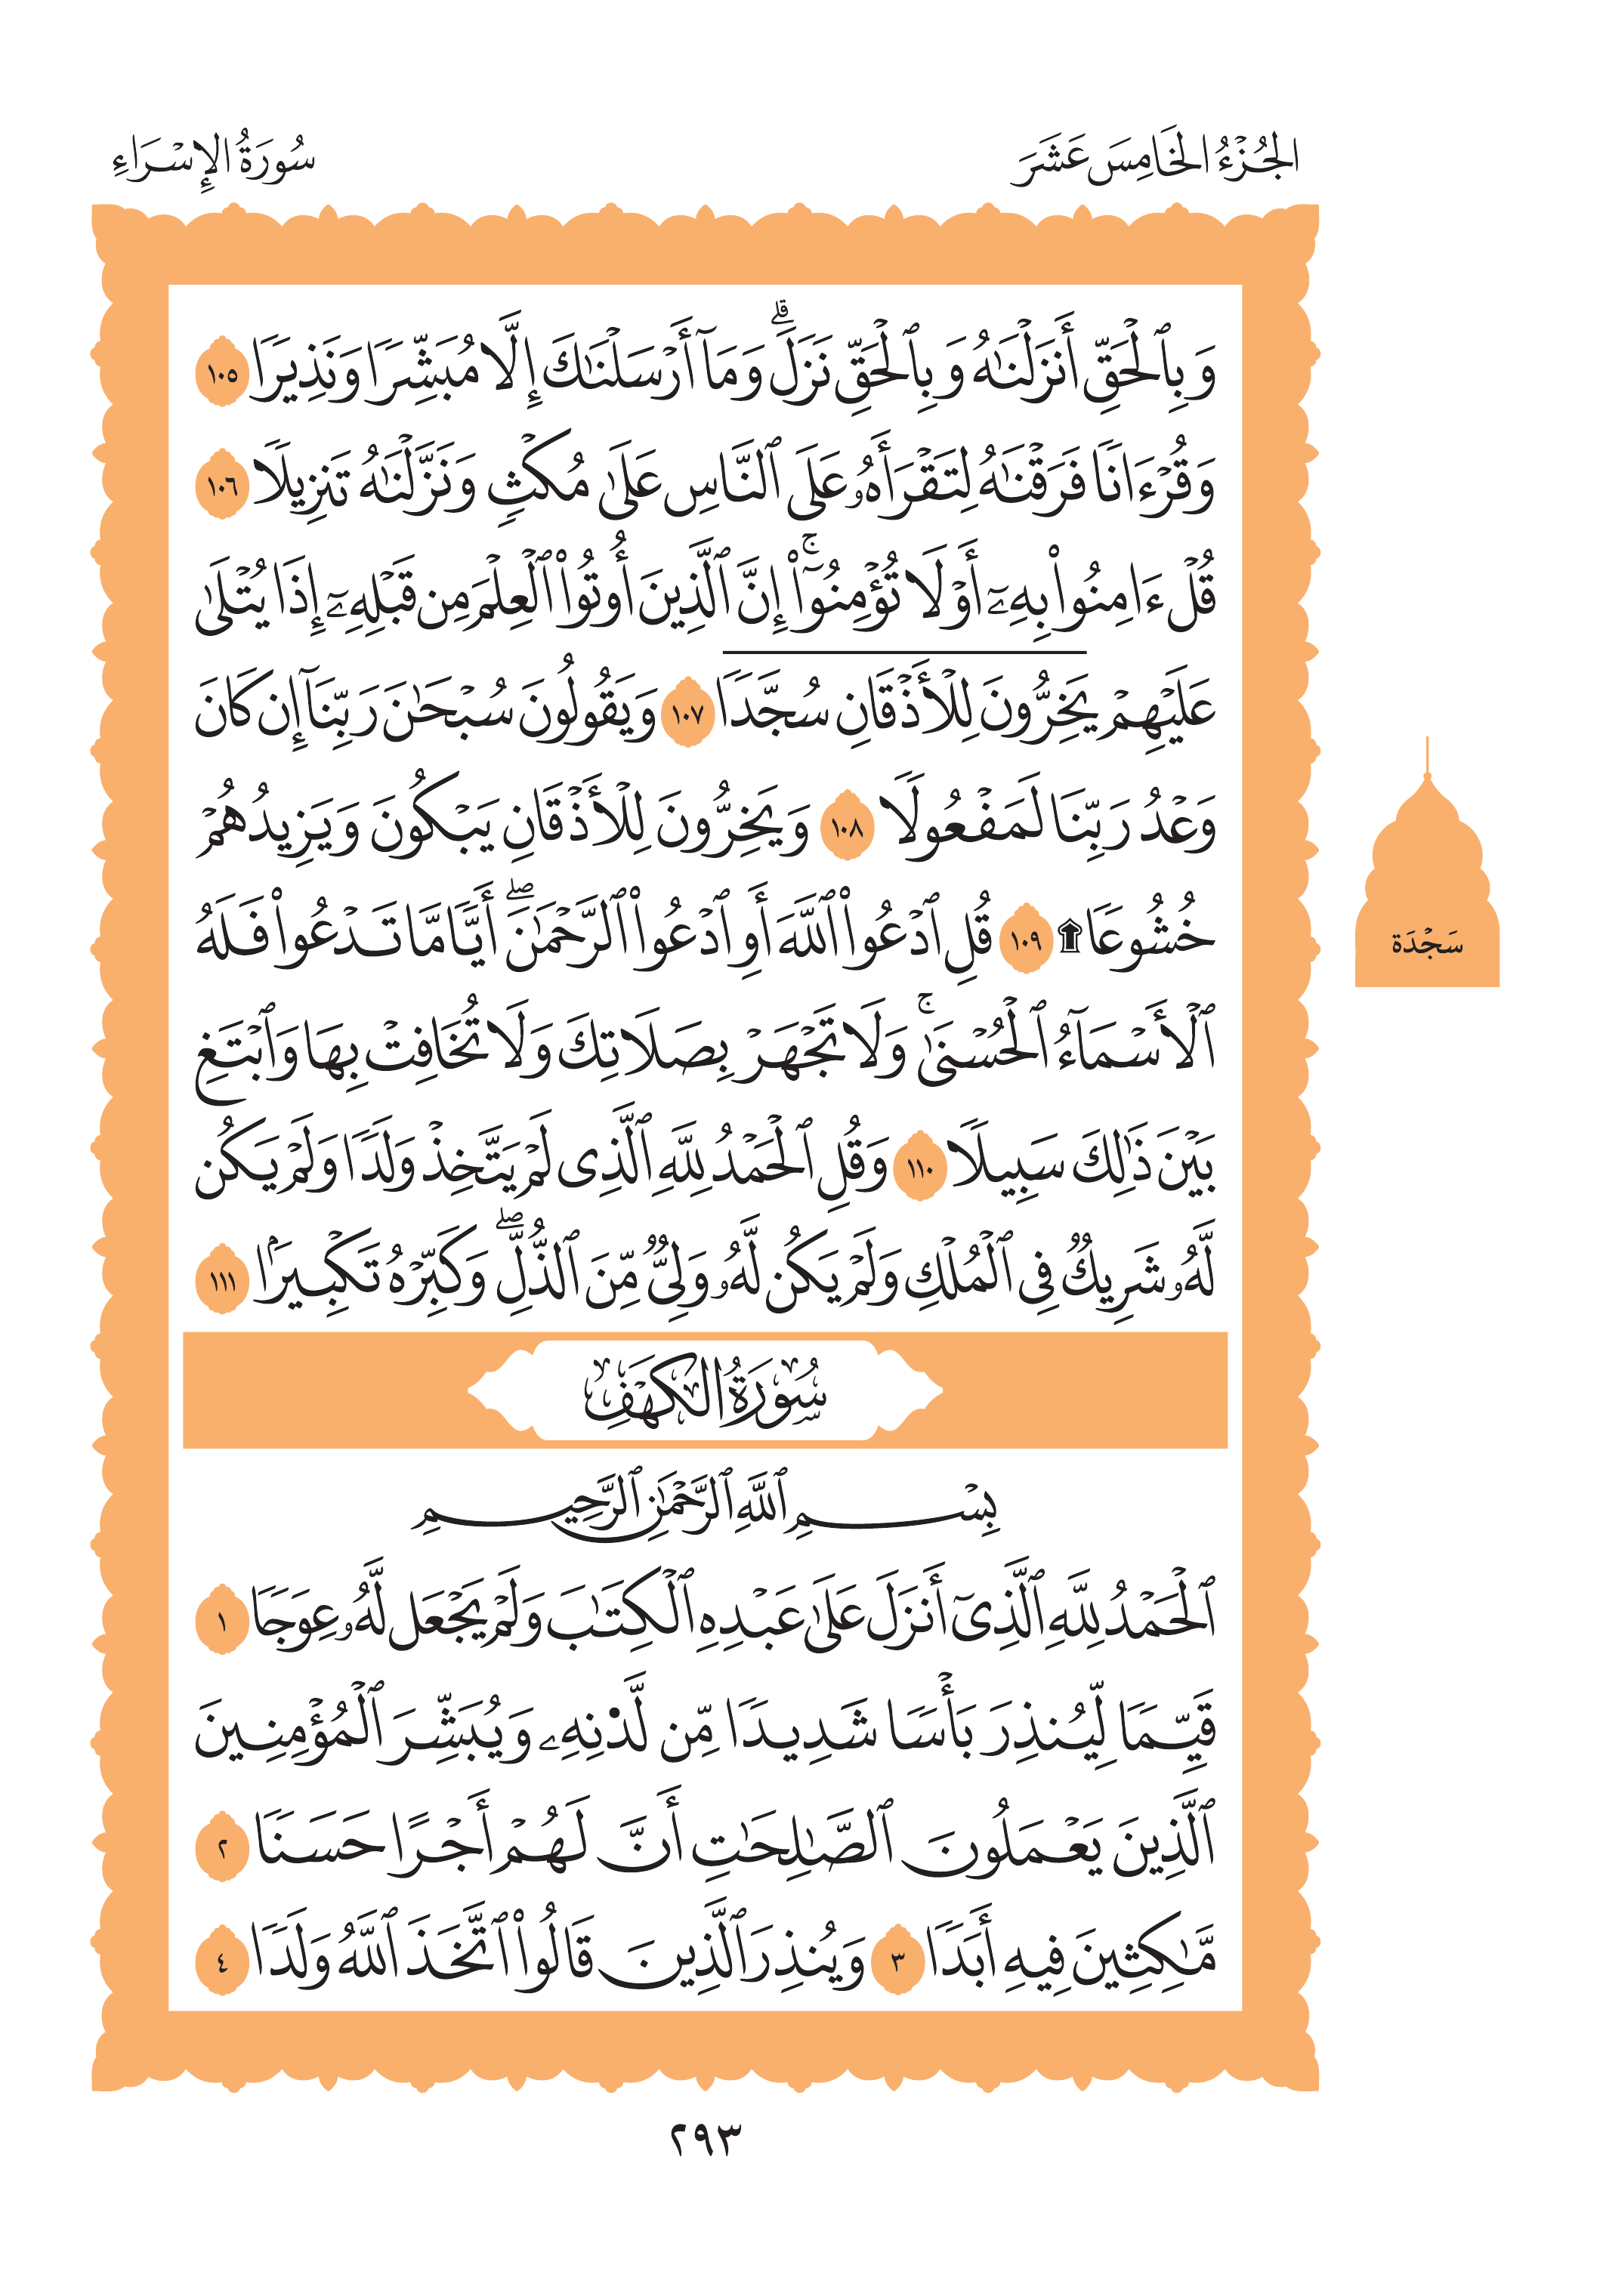 الجُزْءُ الخَامِسَ عَشَرَ
سُورَةُ الإِسْرَاءِ
وَبِٱلْحَقِّ أَنزَلْنَٰهُ وَبِٱلْحَقِّ نَزَلَۗ وَمَآ أَرْسَلْنَٰكَ إِلَّا مُبَشِّرًا وَنَذِيرًا ١٠٥
وَقُرْءَانًا فَرَقْنَٰهُ لِتَقْرَأَهُۥ عَلَى ٱلنَّاسِ عَلَىٰ مُكْثٍ وَنَزَّلْنَٰهُ تَنزِيلًا ١٠٦
قُلْ ءَامِنُوا۟ بِهِۦٓ أَوْ لَا تُؤْمِنُوٓا۟ۚ إِنَّ ٱلَّذِينَ أُوتُوا۟ ٱلْعِلْمَ مِن قَبْلِهِۦٓ إِذَا يُتْلَىٰ
عَلَيْهِمْ يَخِرُّونَ لِلْأَذْقَانِ سُجَّدًا ١٠٧ وَيَقُولُونَ سُبْحَٰنَ رَبِّنَآ إِن كَانَ
وَعْدُ رَبِّنَا لَمَفْعُولًا ١٠٨ وَيَخِرُّونَ لِلْأَذْقَانِ يَبْكُونَ وَيَزِيدُهُمْ
خُشُوعًا ۩ ١٠٩ قُلِ ٱدْعُوا۟ ٱللَّهَ أَوِ ٱدْعُوا۟ ٱلرَّحْمَٰنَۖ أَيًّا مَّا تَدْعُوا۟ فَلَهُ
سَجْدَة
ٱلْأَسْمَآءُ ٱلْحُسْنَىٰۚ وَلَا تَجْهَرْ بِصَلَاتِكَ وَلَا تُخَافِتْ بِهَا وَٱبْتَغِ
بَيْنَ ذَٰلِكَ سَبِيلًا ١١٠ وَقُلِ ٱلْحَمْدُ لِلَّهِ ٱلَّذِى لَمْ يَتَّخِذْ وَلَدًا وَلَمْ يَكُن
لَّهُۥ شَرِيكٌ فِى ٱلْمُلْكِ وَلَمْ يَكُن لَّهُۥ وَلِىٌّ مِّنَ ٱلذُّلِّۖ وَكَبِّرْهُ تَكْبِيرًۢا ١١١
سُورَةُ الكَهْفِ
بِسْمِ ٱللَّهِ ٱلرَّحْمَٰنِ ٱلرَّحِيمِ
ٱلْحَمْدُ لِلَّهِ ٱلَّذِىٓ أَنزَلَ عَلَىٰ عَبْدِهِ ٱلْكِتَٰبَ وَلَمْ يَجْعَل لَّهُۥ عِوَجًا ١
قَيِّمًا لِّيُنذِرَ بَأْسًا شَدِيدًا مِّن لَّدْنِهِۦ وَيُبَشِّرَ ٱلْمُؤْمِنِينَ
ٱلَّذِينَ يَعْمَلُونَ ٱلصَّٰلِحَٰتِ أَنَّ لَهُمْ أَجْرًا حَسَنًا ٢
مَّٰكِثِينَ فِيهِ أَبَدًا ٣ وَيُنذِرَ ٱلَّذِينَ قَالُوا۟ ٱتَّخَذَ ٱللَّهُ وَلَدًا ٤
٢٩٣